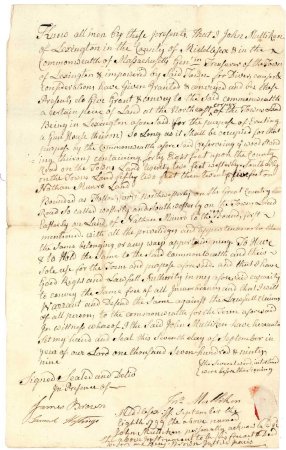 Know all men by these presents that I John Mulliken
of Lexington in the County of Middlesex & in the
Commonwealth of Massachusetts Gentn Treasurer of the Town
of Lexington & impowered by Said Town for Divers causes &
considerations have given Granted & conveyed and by these
Presents do give Grant & convey to the Said commonwealth
a certain piece of Land at the Northeast of the Town Land
Being in Lexington afore said for the purpose of Erecting
a Gun House thereon So Long as it Shall be occupied for that
purpose in the Commonwealth afore said reserving
thereon containing forty Eight feet upon the County
Road on the Town Land
on the Town Land fifty two feet then twenty five feet on
Nathan Munro Land
Bounded as follows Northeasterly on the Great Country
Road So called Southerly on Town Land
Easterly on Land of Nathan Munro to the Bound first
mentioned with all the priviledges and appurtenances to
the Same belonging or any ways appertaining To Have
& to Hold the Same to the Said commonwealth and their
Sole use for the Term and purpose afore said and that I have
Good Right and Lawfull Authority in my afore said capacity
to convey the Same free of all Incumbrances and that I will
Warrant and Defend the Same against the Lawfull claims
of all persons to the commonwealth for the Term afore said
In witness whereof I the Said John Mulliken have hereunto
Set my hand and Seal this Seventh day of September in
year of our Lord one thousand Seven hundred & ninety
nine
before the signing
Signed Sealed and Delivd
In Presence of
James Brown
Samuel Hastings
Jno Mulliken
Middlesex ss September the
Eighth 1799 the above named
John Mulliken personally acknowledged
the above Instrument to be his free act & Deed
before me James Brown Just of peace